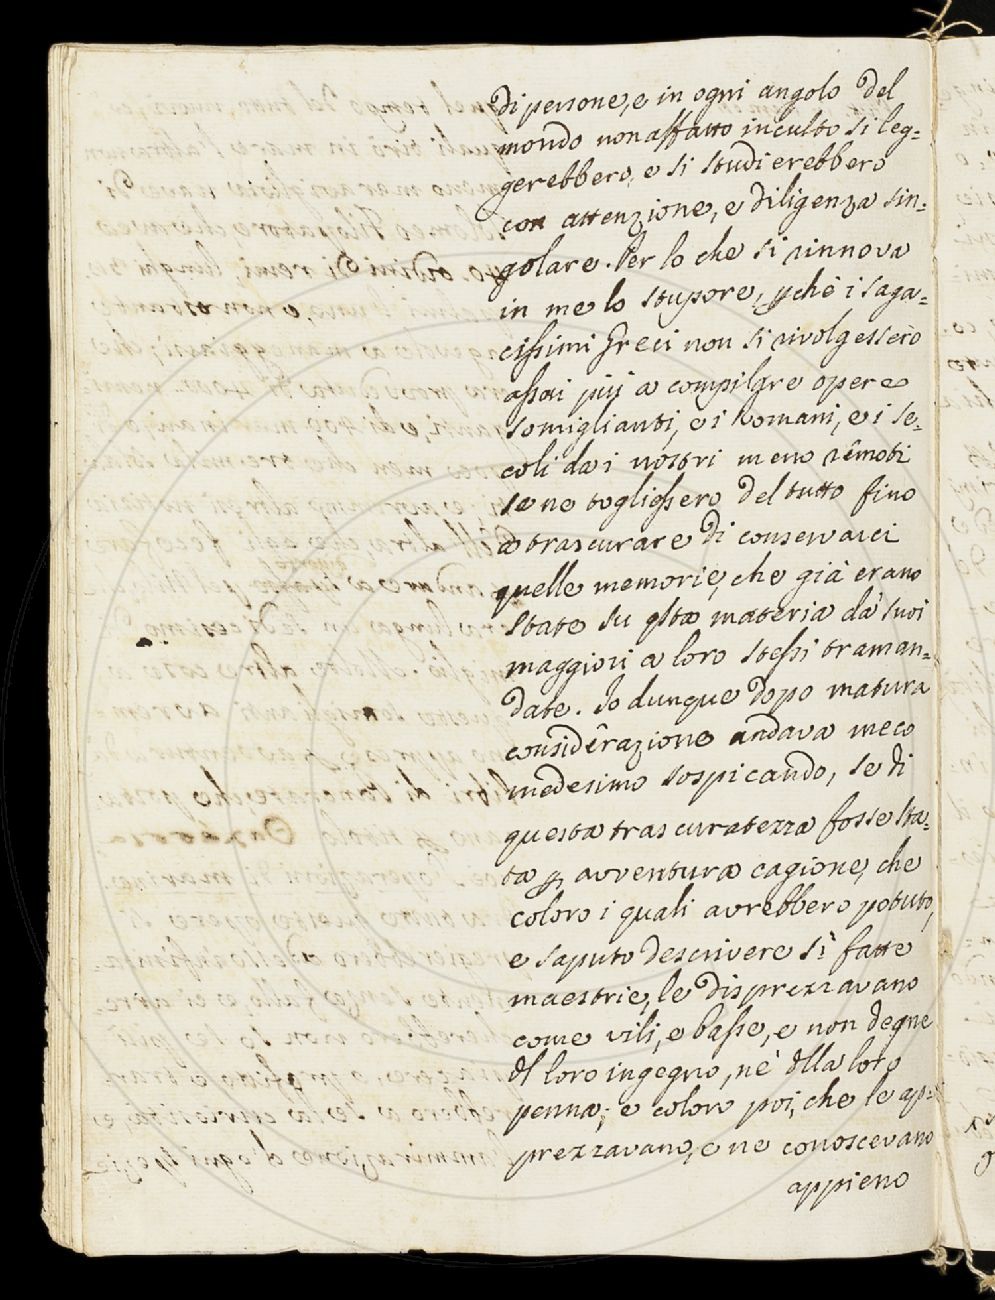 di persone, e in ogni angolo del
mondo non affatto inculto si leg=
gerebbero, e si studierebbero
con attenzione, e diligenza sin=
golare. Per lo che si rinnova
in me lo stupore, pchè i saga=
cissimi Greci non si rivolgessero
assai più a compilare opere
somiglianti, e i Romani, e i se=
coli da i nostri meno rêmoti
se ne togliessero del tutto fino
a trascurare di conservarci
quelle memorie, che già erano
state su qsta materia da' suoi
maggiori a loro stessi traman=
date. Io dunque dopo matura
considêrazione andava meco
medesimo sospicando, se di
questa trascuratezza fosse sta=
ta p avventura cagione, che
coloro i quali avrebbero potuto,
e saputo descrivere sì fatte
maestrie, le disprezzavano
come vili, e basse, e non degne
dl loro ingegno, nè dlla loro
penna; e coloro poi, che le ap=
prezzavano, e ne conoscevano
appieno